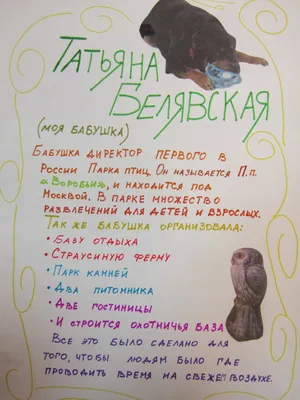 Татьяна
Белявская
(моя бабушка)
Бабушка директор первого в
России Парка птиц. Он называется П.п.
«Воробьи», и находится под
Москвой. В парке множество
развлечений для детей и взрослых.
Так же бабушка организовала:
• Базу отдыха
• Страусиную ферму
• Парк камней
• Два питомника
• Две гостиницы
• И строится охотничья база
Все это было сделано для
того, чтобы людям было где
проводить время на свежем воздухе.